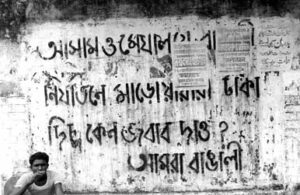 আসাম ও মেঘালয়ে বা
নির্যাতনে মাড়োয়ারীরা টাকা
দিচ্ছে কেন জবাব দাও ?
আমরা বাঙালী